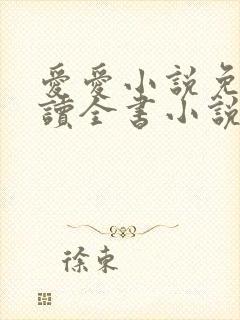 愛愛小說免
讀全書小說
徐東